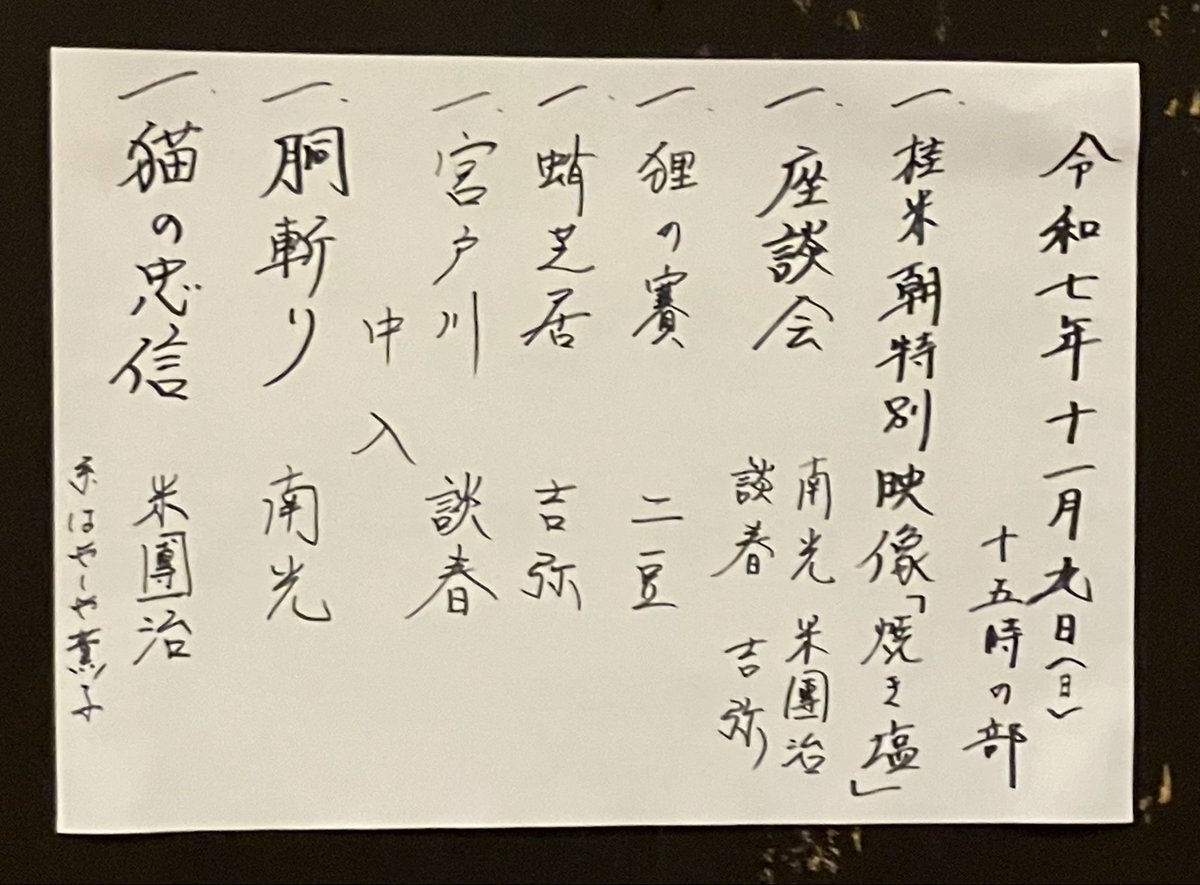 令和七年十一月九日(日)
十五時の部
一、桂米朝特別映像「焼き塩」
一、座談会 南光 米團治
談春 吉弥
一、狸の賽 二豆
一、蛸芝居 吉弥
一、宮戸川 談春
中入
一、胴斬り 南光
一、猫の忠信 米團治
糸 はやしや薫子